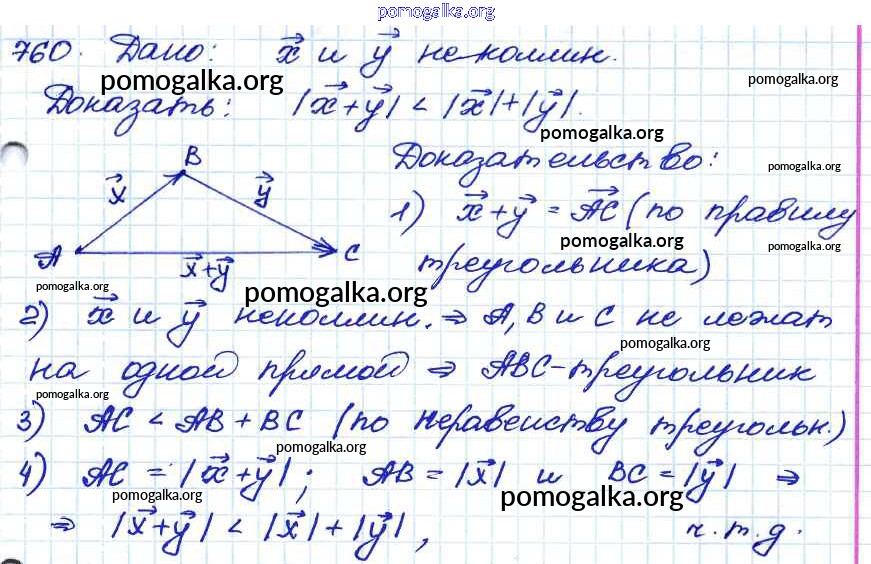 pomogalka.org
760. Дано: x⃗ и y⃗ неколлин.
pomogalka.org
pomogalka.org
Доказать: |x⃗+y⃗| < |x⃗|+|y⃗|.
pomogalka.org
B
x⃗
y⃗
A
C
x⃗+y⃗
Доказательство:
pomogalka.org
1) x⃗+y⃗ = AC⃗ (по правилу
pomogalka.org
pomogalka.org
треугольника)
pomogalka.org
pomogalka.org
2) x⃗ и y⃗ неколлин. ⇒ A, B и C не лежат
pomogalka.org
на одной прямой ⇒ ABC-треугольник
pomogalka.org
3) AC < AB + BC (по неравенству треугольн.)
pomogalka.org
4) AC = |x⃗+y⃗|; AB = |x⃗| и BC = |y⃗| ⇒
pomogalka.org
pomogalka.org
⇒ |x⃗+y⃗| < |x⃗| + |y⃗|, ч.т.д.